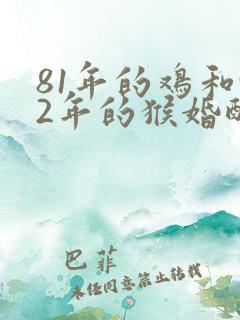 81年的鸡和
2年的猴婚配
巴菲
未经同意禁止转载